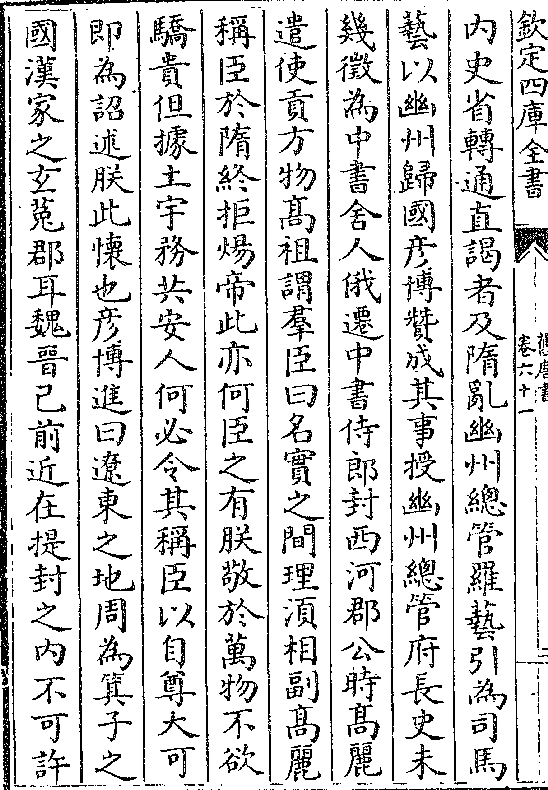 欽定四庫全書
舊唐書
卷六十一
內史省轉通直謁者及隋亂幽州總管羅藝引為司馬
藝以幽州歸國彦博贊成其事授幽州總管府長史未
幾徵為中書舍人俄遷中書侍郎封西河郡公時髙麗
遣使貢方物髙祖謂羣臣曰名實之間理湏相副髙麗
稱臣於隋終拒煬帝此亦何臣之有朕敬於萬物不欲
驕貴但據土宇務共安人何必令其稱臣以自尊大可
即為詔述朕此懷也彦博進曰遼東之地周為箕子之
國漢家之玄菟郡耳魏晉已前近在提封之内不可許